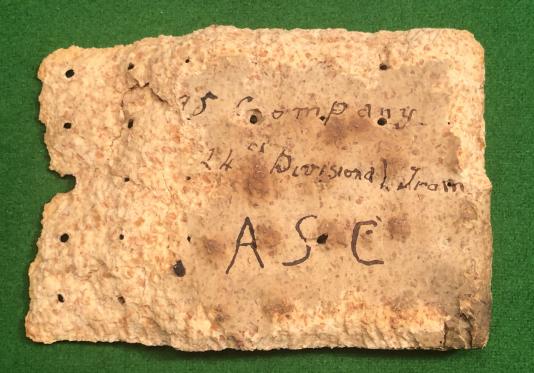 95 Company.
24th Divisional Train
ASC